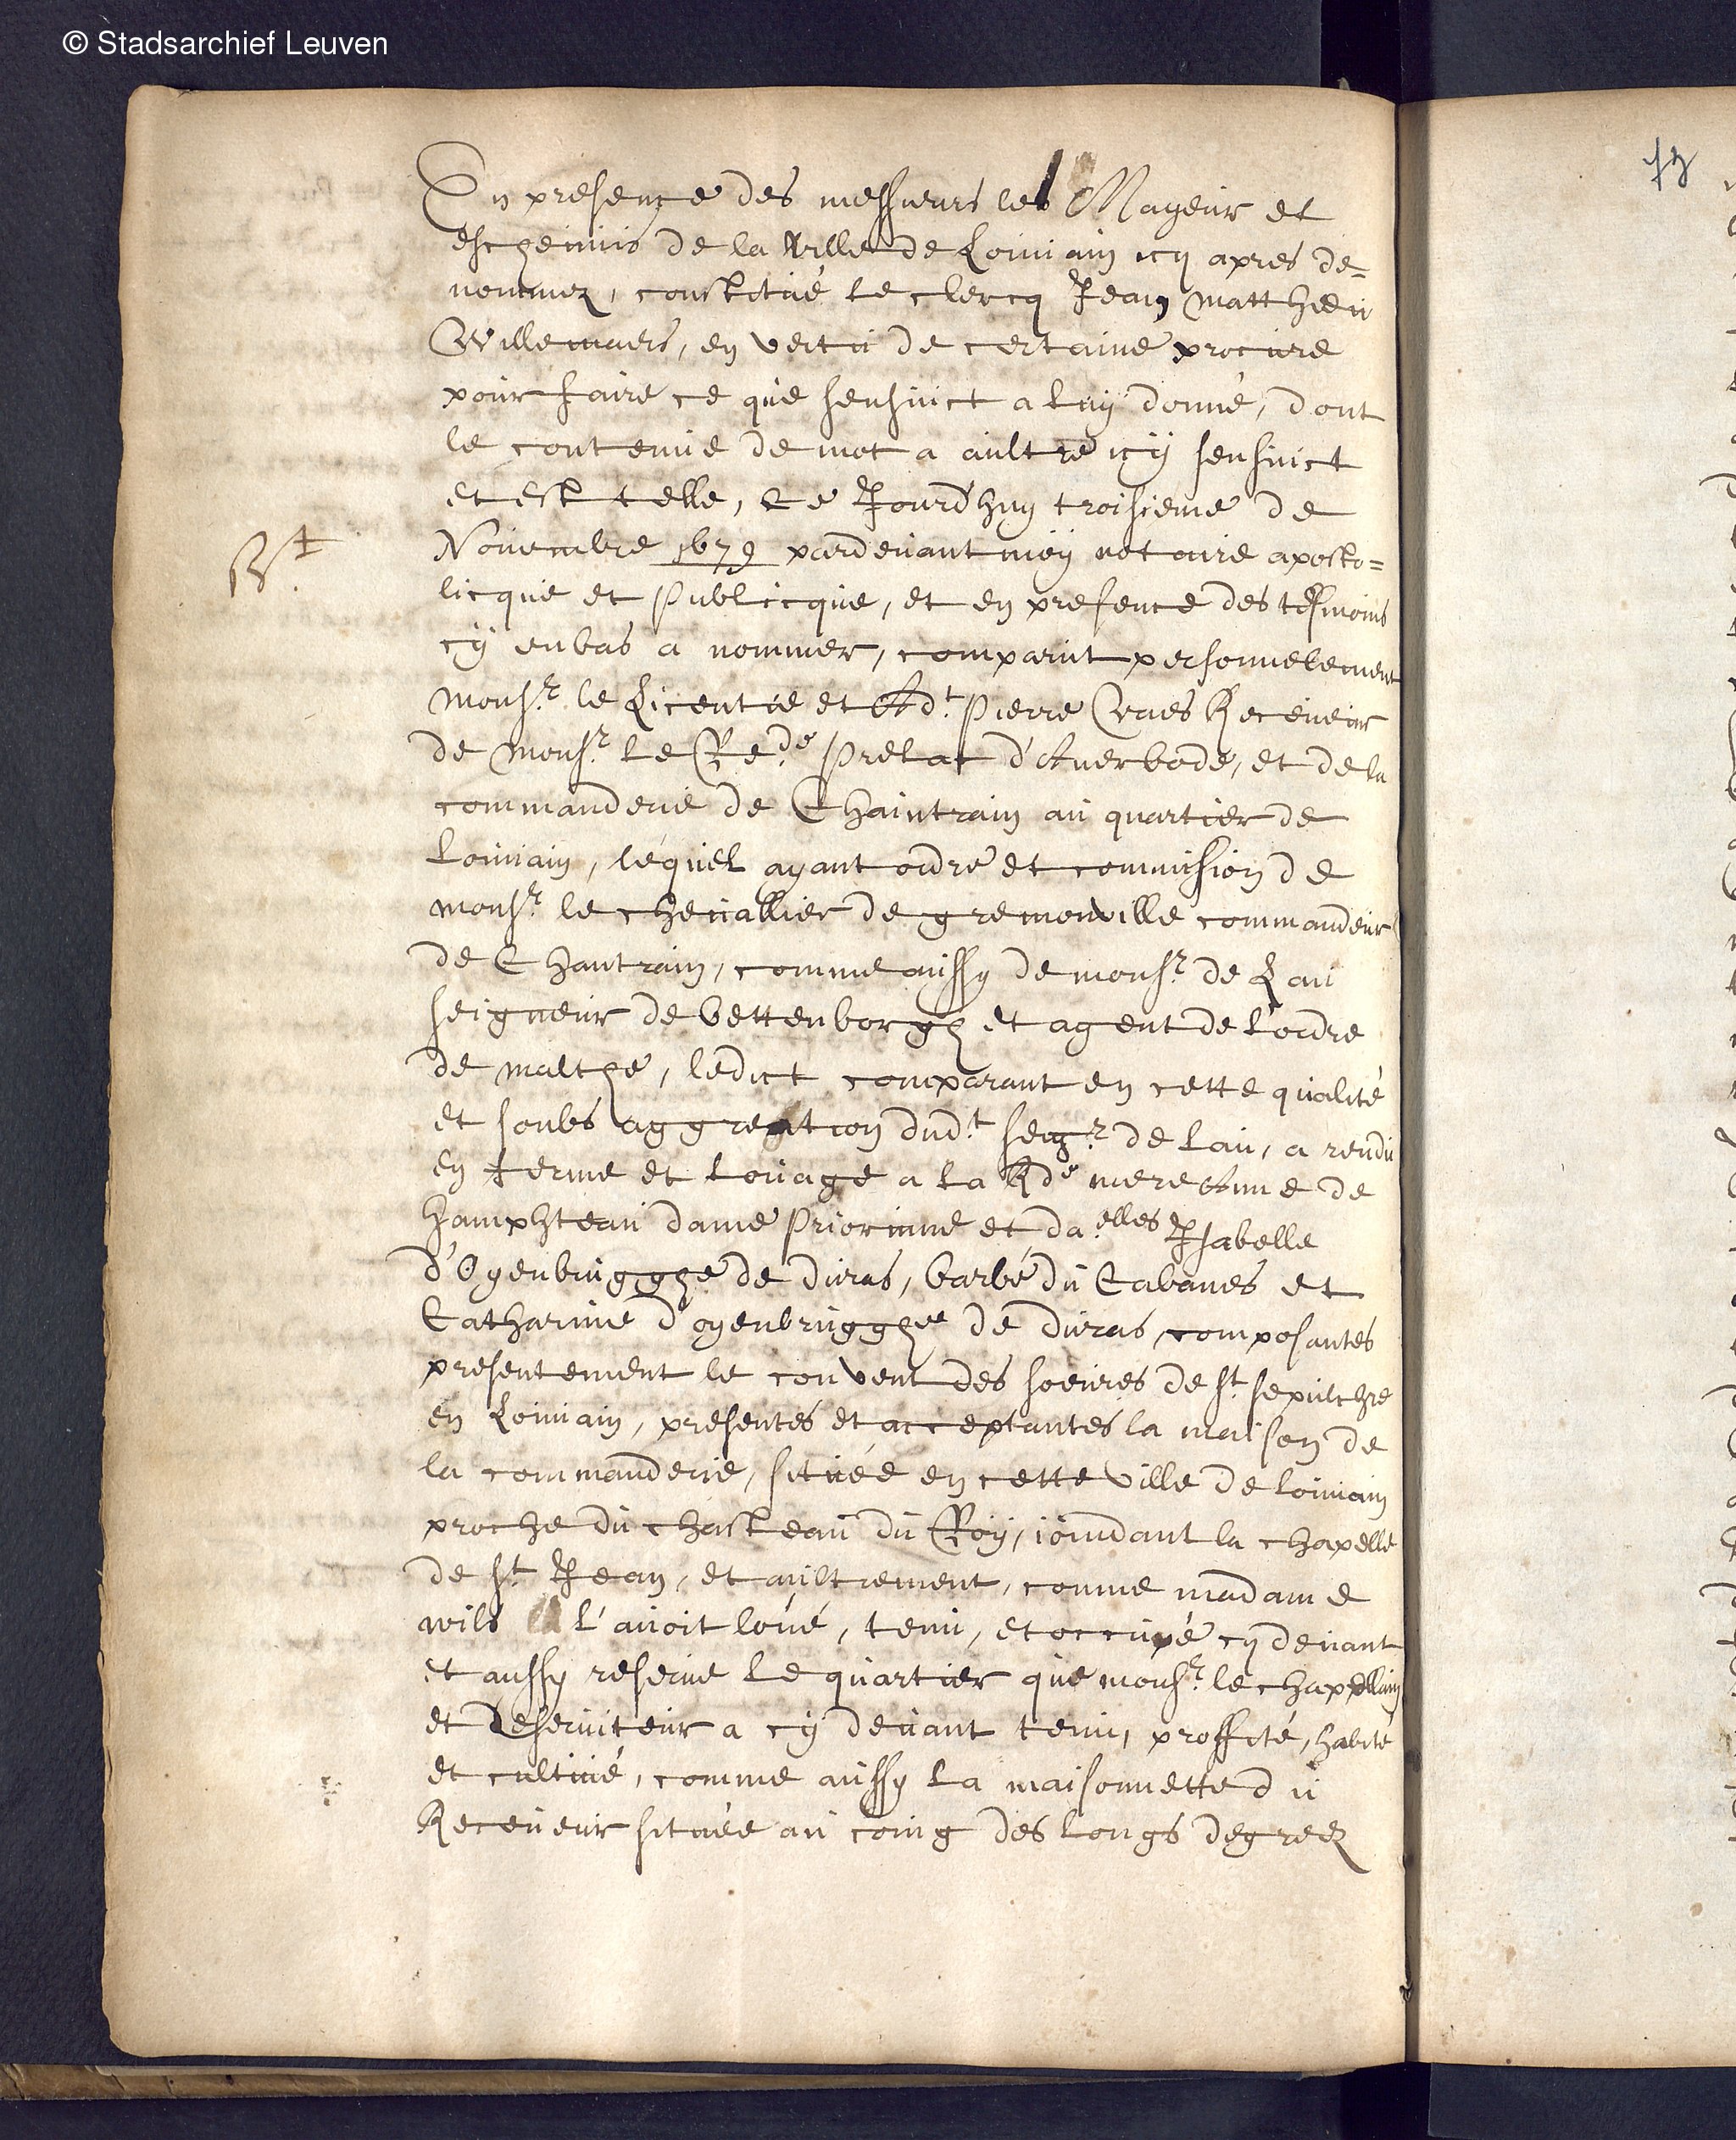 © Stadsarchief Leuven
En presence des messieurs les Mayeur et
eschevins de la ville de Louvain icy apres de=
nommez, constitué le clercq Jean Matthieu
Willemaers, en vertu de certaine procure
pour faire ce que sensuict a luy donné, dont
le contenue de mot a aultre icy sensuict
et est telle, Ce Jourd'huy troisieme de
Novembre 1679 pardevant moy notaire aposto=
licque et Publicque, et en presence des tesmoins
cy enbas a nommer, comparut personnelement
Mons.r le Licentie et Ad.t Pierre Receveur
de Mons.r le Re.de Prelat d'Averbode, et de la
commanderie de Chaintrain au quartier de
Louvain, léquel ayant ordre et commission de
mons.r le chevallier de gremonville commandeur
de Chantrain, comme aussy de mons.r de Lau
seigneur de bettenborgh et agent de l'ordre
de malthe, ledict comparant en cette qualité
et soubs aggreation dud.t seig.r de Lau, a rendu
en ferme et louage a la Rde mere Anne de
hamphteau dame Priorinne et da.elles Isabelle
d'Oyenbrugghe de duras, barbé du Cabanes et
Catharine d'oyenbrugghe de duras, composantes
presentement le convent des soeures de st. sepulchre
en Louvain, presentes et acceptantes la maison de
la commanderie, située en cette ville de louvain
proche du chasteau du Roy, joindant la chapelle
de st. Jean, et aultrement, comme madame
wils l'avoit loué, tenu, et occupé cy devant
et aussy reserve le quartier que mons.r le chappellain
et Deserviteur a cy devant tenu, proffité, habité
et cultivé, comme aussy la maisonnette du
Receveur située au coing des longs degrez